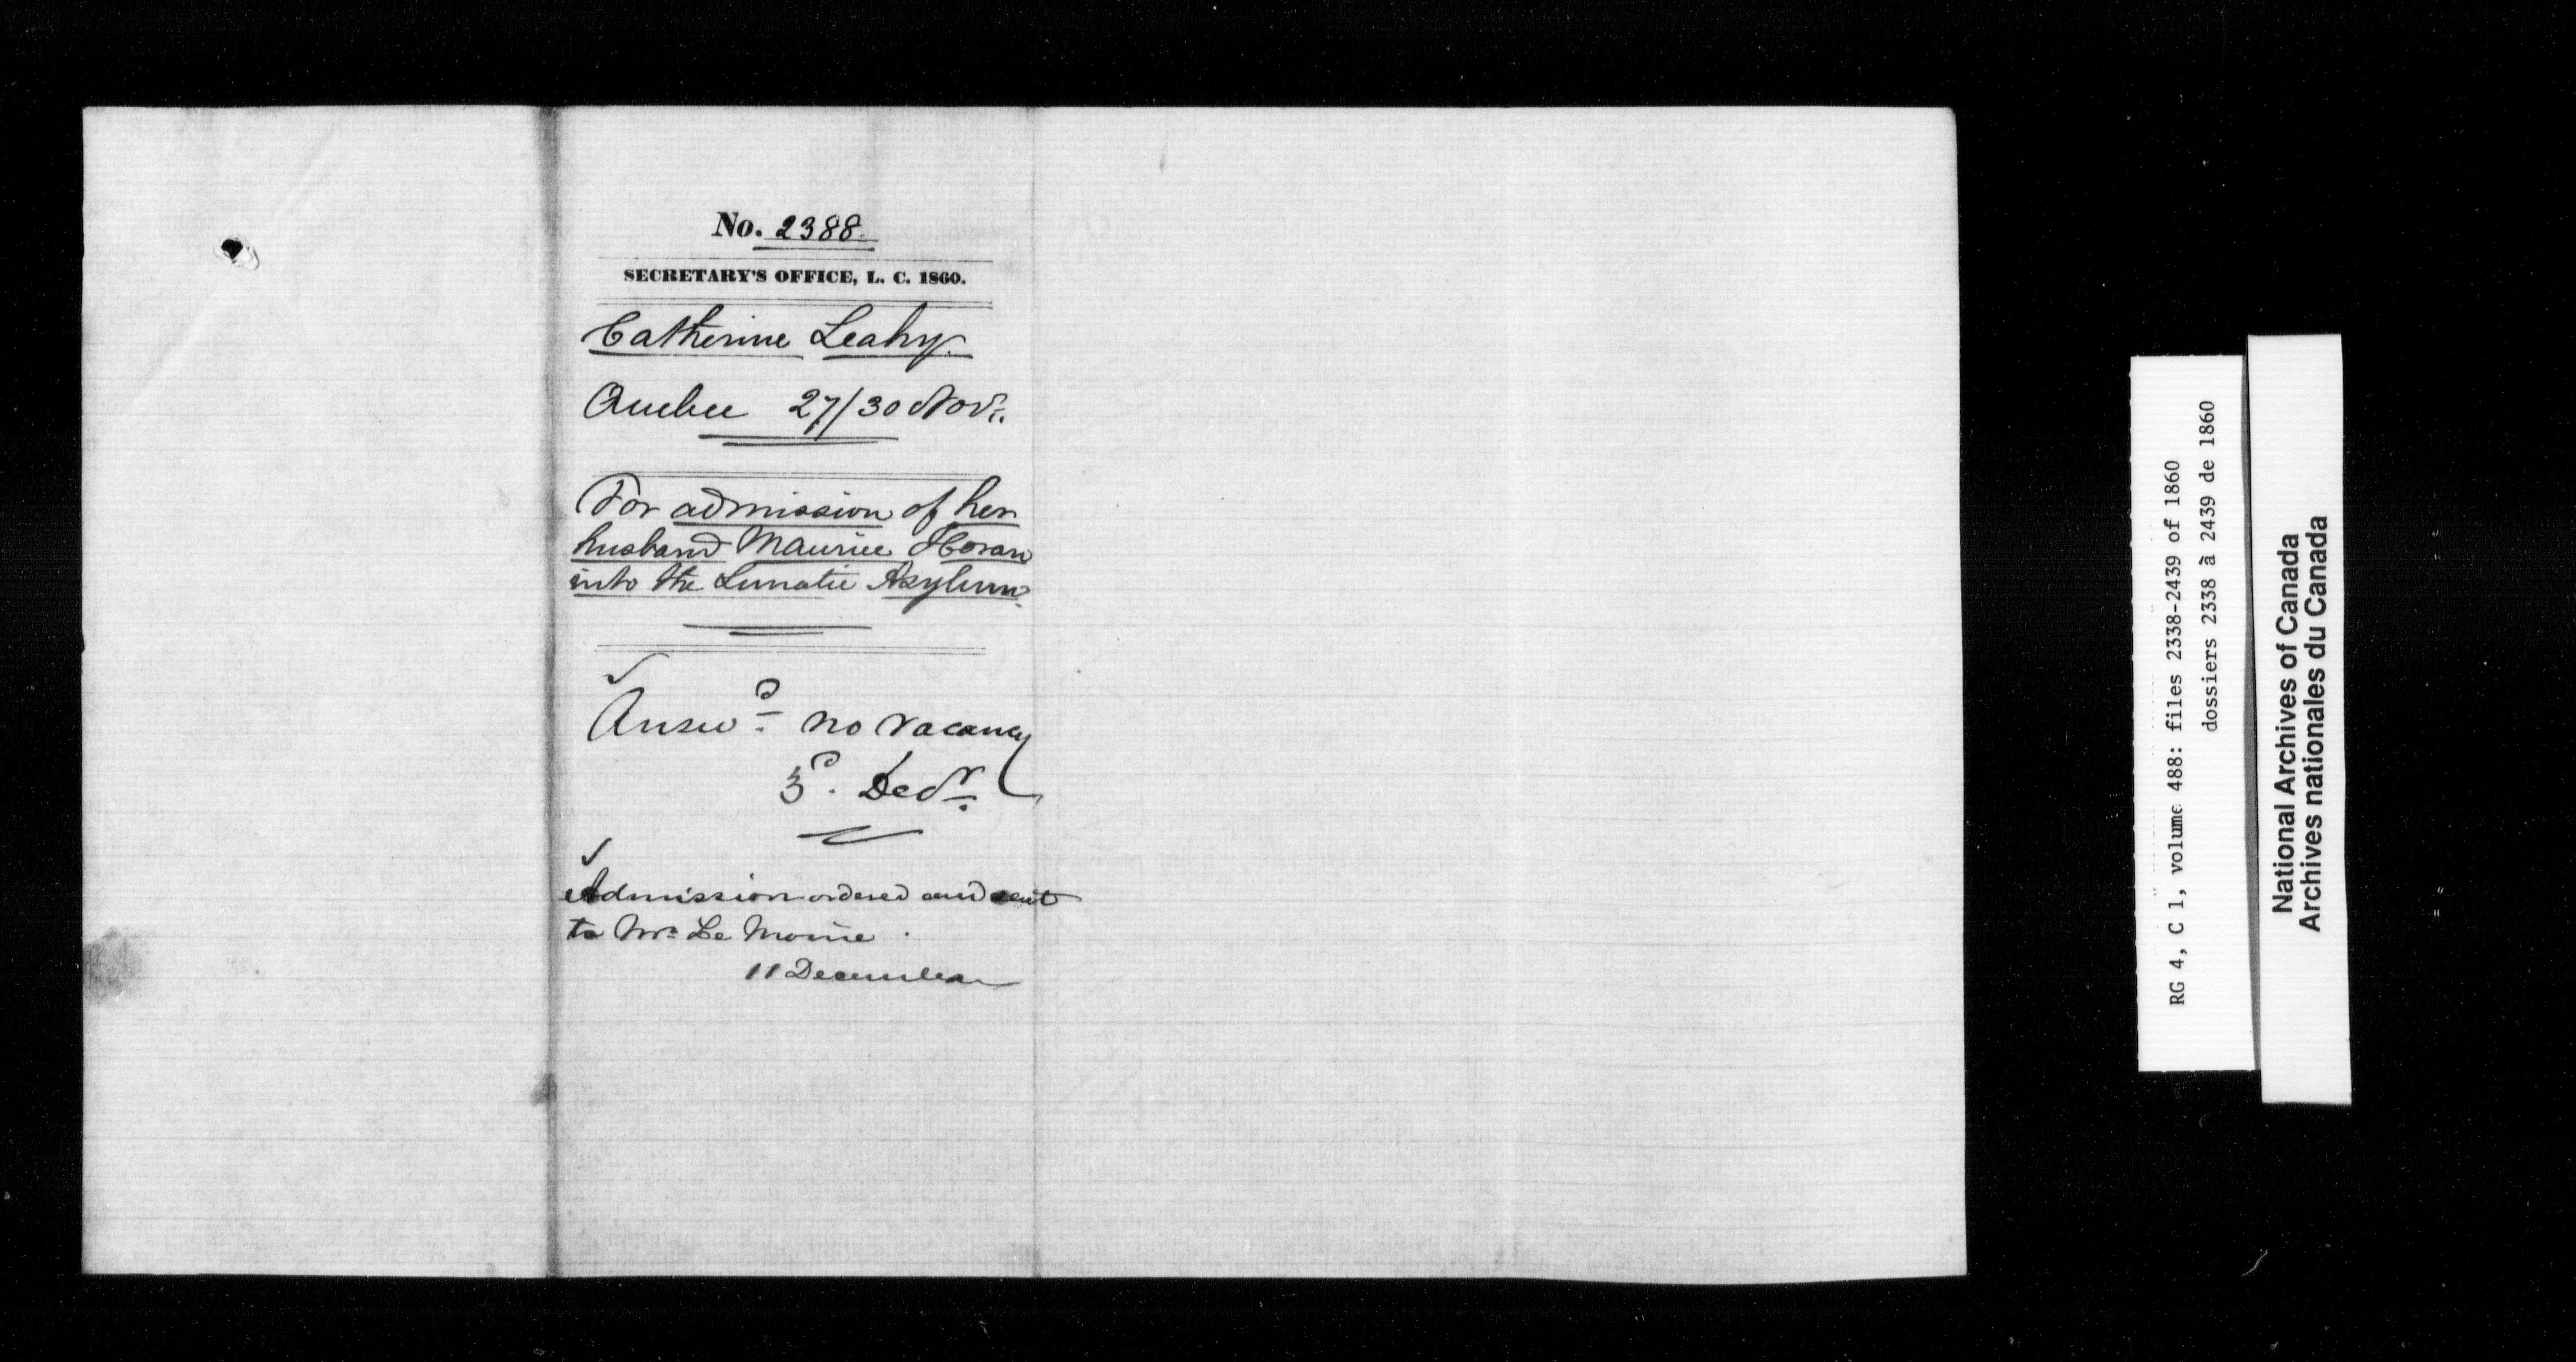 No. 2388.
SECRETARY'S OFFICE, L. C. 1860.
Catherine Leahy.
Quebec 27/30 Novr.
For admission of her
husband Maurice Horan
into the Lunatic Asylum.
Answd. no vacancy
3d. Decr.
Admission ordered and sent
to Mr. Le Moine.
11 December
RG 4, C 1, volume 488: files 2338-2439 of 1860
dossiers 2338 à 2439 de 1860
National Archives of Canada
Archives nationales du Canada